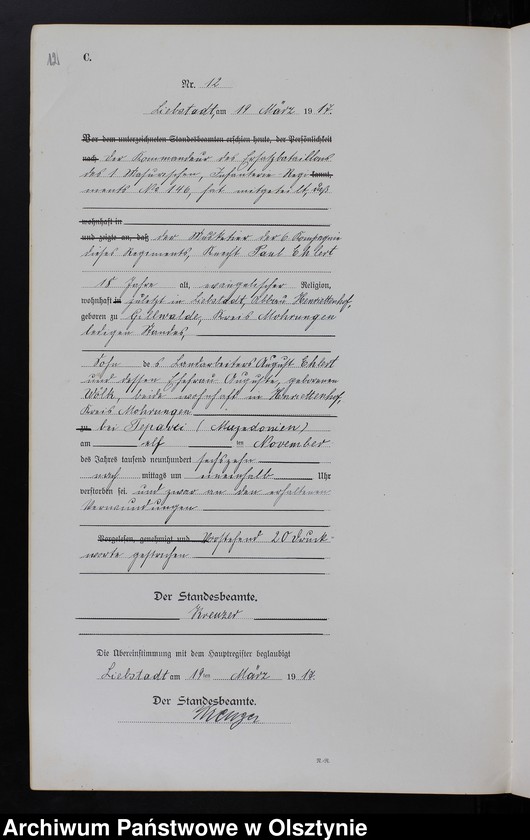 121
C.
Nr. 12
Liebstadt, am 19 März 1917.
Vor dem unterzeichneten Standesbeamten erschien heute, der Persönlichkeit
nach der Kommandeur des Ersatzbataillons
des 1 Masurischen, Infanterie Regi kannt,
ments No 146, hat mitgeteilt, daß
wohnhaft in
und zeigte an, daß der Musketier der 6 Kompagnie
dieses Regiments, Knecht Paul Ehlert
18 Jahre alt, evangelischer Religion,
wohnhaft in zuletzt in Liebstadt, Henriettenhof,
geboren zu Gillwalde, Kreis Mohrungen
ledigen Standes,
Sohn des Landarbeiters August Ehlert
und dessen Ehefrau Auguste, geborenen
beide wohnhaft in Henriettenhof
Kreis Mohrungen
zu bei Tepavci (Mazedonien)
am elf ten November
des Jahres tausend neunhundert sechszehn
nach mittags um eineinhalb Uhr
verstorben sei und zwar an den erhaltenen
Verwundungen
Vorgelesen, genehmigt und Vorstehend 20 Druck-
worte gestrichen
Der Standesbeamte.
Kreuzer
Die Übereinstimmung mit dem Hauptregister beglaubigt
Liebstadt am 19ten März 1917.
Der Standesbeamte.
Archiwum Państwowe w Olsztynie